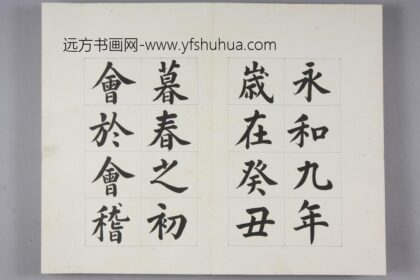 远方书画网-www.yfshuhua.com
永和九年
歲在癸丑
暮春之初
會於會稽